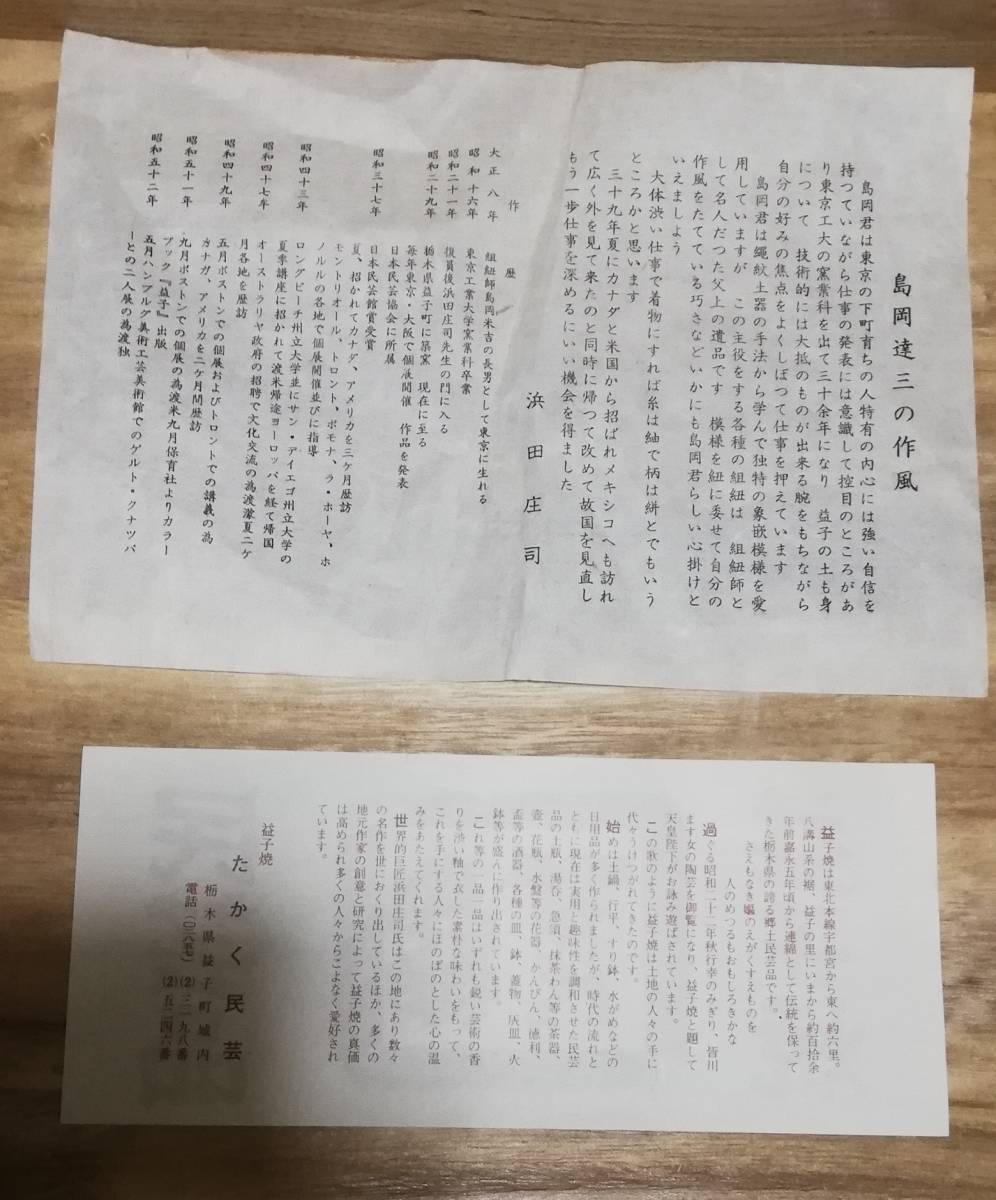 島岡達三の作風
島岡君は東京の下町育ちの人特有の内心には強い自信を
持つていながら仕事の発表には意識して控目のところがあ
り東京工大の窯業科を出て三十余年になり 益子の土も身
について 技術的には大抵のものが出来る腕をもちながら
自分の好みの焦点をよくしぼつて仕事を押えています
島岡君は縄紋土器の手法から学んで独特の象嵌模様を愛
用していますが この主役をする各種の組紐は 組紐師と
して名人だつた父上の遺品です 模様を紐に委せて自分の
作風をたてている巧さなどいかにも島岡君らしい心掛けと
いえましよう
大体渋い仕事で着物にすれば糸は紬で柄は絣とでもいう
ところかと思います
三十九年夏にカナダと米国から招ばれメキシコへも訪れ
て広く外を見て来たのと同時に帰つて改めて故国を見直し
もう一歩仕事を深めるにいい機会を得ました
浜田庄司
作歴
大正八年 組紐師島岡米吉の長男として東京に生れる
昭和十六年 東京工業大学窯業科卒業
昭和二十一年 復員後浜田庄司先生の門に入る
昭和二十九年 栃木県益子町に築窯 現在に至る
毎年東京・大阪で個展開催 作品を発表
日本民芸協会に所属
昭和三十七年 日本民芸館賞受賞
夏、招かれてカナダ、アメリカを三ケ月歴訪
モントリオール、トロント、ポモナ、ラ・ホーヤ、ホ
ノルルの各地で個展開催並びに指導
昭和四十三年 ロングビーチ州立大学並にサン・デイエゴ州立大学の
夏季講座に招かれて渡米帰途ヨーロッパを経て帰国
昭和四十七年 オーストラリヤ政府の招聘で文化交流の為渡濠夏二ケ
月各地を歴訪
昭和四十九年 五月ボストンでの個展およびトロントでの講義の為
カナガ、アメリカを二ケ月間歴訪
昭和五十一年 九月ボストンでの個展の為渡米九月保育社よりカラー
ブック『益子』出版
昭和五十二年 五月ハンブルグ美術工芸美術館でのゲルト・クナツパ
ーとの二人展の為渡独
益子焼は東北本線宇都宮から東へ約六里。
八溝山系の裾、益子の里にいまから約百拾余
年前嘉永五年頃から連綿として伝統を保って
きた栃木県の誇る郷土民芸品です。
さえもなき嫗のえがくすえものを
人のめつるもおもしろきかな
過ぐる昭和二十二年秋行幸のみぎり、皆川
ます女の陶芸を御覧になり、益子焼と題して
天皇陛下がお詠み遊ばされています。
この歌のように益子焼は土地の人々の手に
代々うけつがれてきたのです。
始めは土鍋、行平、すり鉢、水がめなどの
日用品が多く作られましたが、時代の流れと
ともに現在は実用と趣味性を調和させた民芸
品の土瓶、湯呑、急須、抹茶わん等の茶器、
壷、花瓶、水盤等の花器、かんびん、徳利、
盃等の酒器、各種の皿、鉢、蓋物、灰皿、火
鉢等が盛んに作り出されています。
これ等の一品一品はいずれも鋭い芸術の香
りを渋い釉で衣した素朴な味わいをもって、
これを手にする人々にほのぼのとした心の温
みをあたえてくれます。
世界的巨匠浜田庄司氏はこの地にあり数々
の名作を世におくり出しているほか、多くの
地元作家の創意と研究によって益子焼の真価
は高められ多くの人々からこよなく愛好され
ています。
益子焼
たかく民芸
栃木県益子町城内
電話(〇二八五七)(2)三一九八番
(2)五二四六番